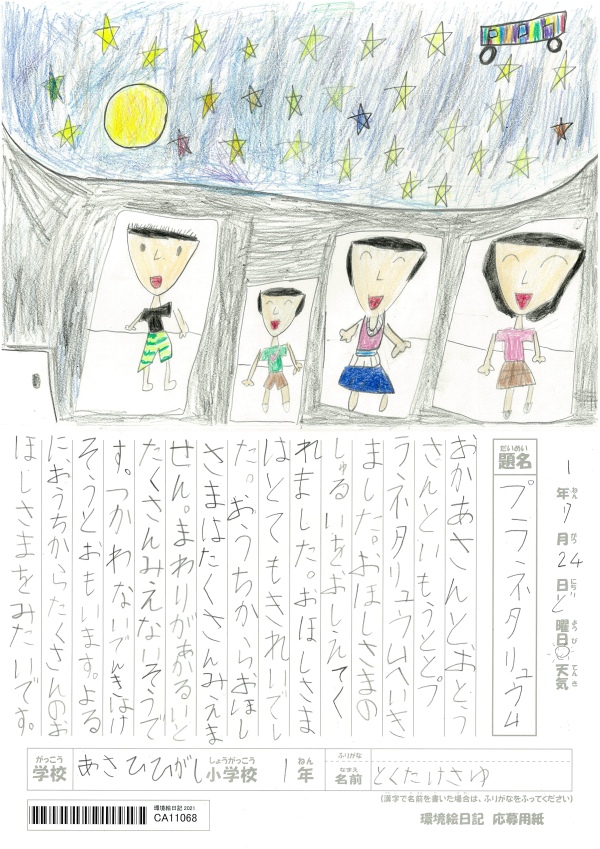 1年7月24日ど曜日天気
ねん がつ にち ようび てんき
だいめい
題名 プラネタリュウム
おかあさんとおとう
さんといもうととプ
ラネタリュウムへいき
ました。おほしさまの
しゅるいをおしえてく
れました。おほしさま
はとてもきれいでし
た。おうちからおほし
さまはたくさんみえま
せん。まわりがあかるいと
たくさんみえないそうで
す。つかわないでんきはけ
そうとおもいます。よる
におうちからたくさんのお
ほしさまをみたいです。
がっこう しょうがっこう ねん ふりがな
学校 あさひひがし小学校 1年 なまえ 名前 とくたけさゆ
(漢字で名前を書いた場合は、ふりがなをふってください)
環境絵日記 応募用紙
環境絵日記2021
CA11068